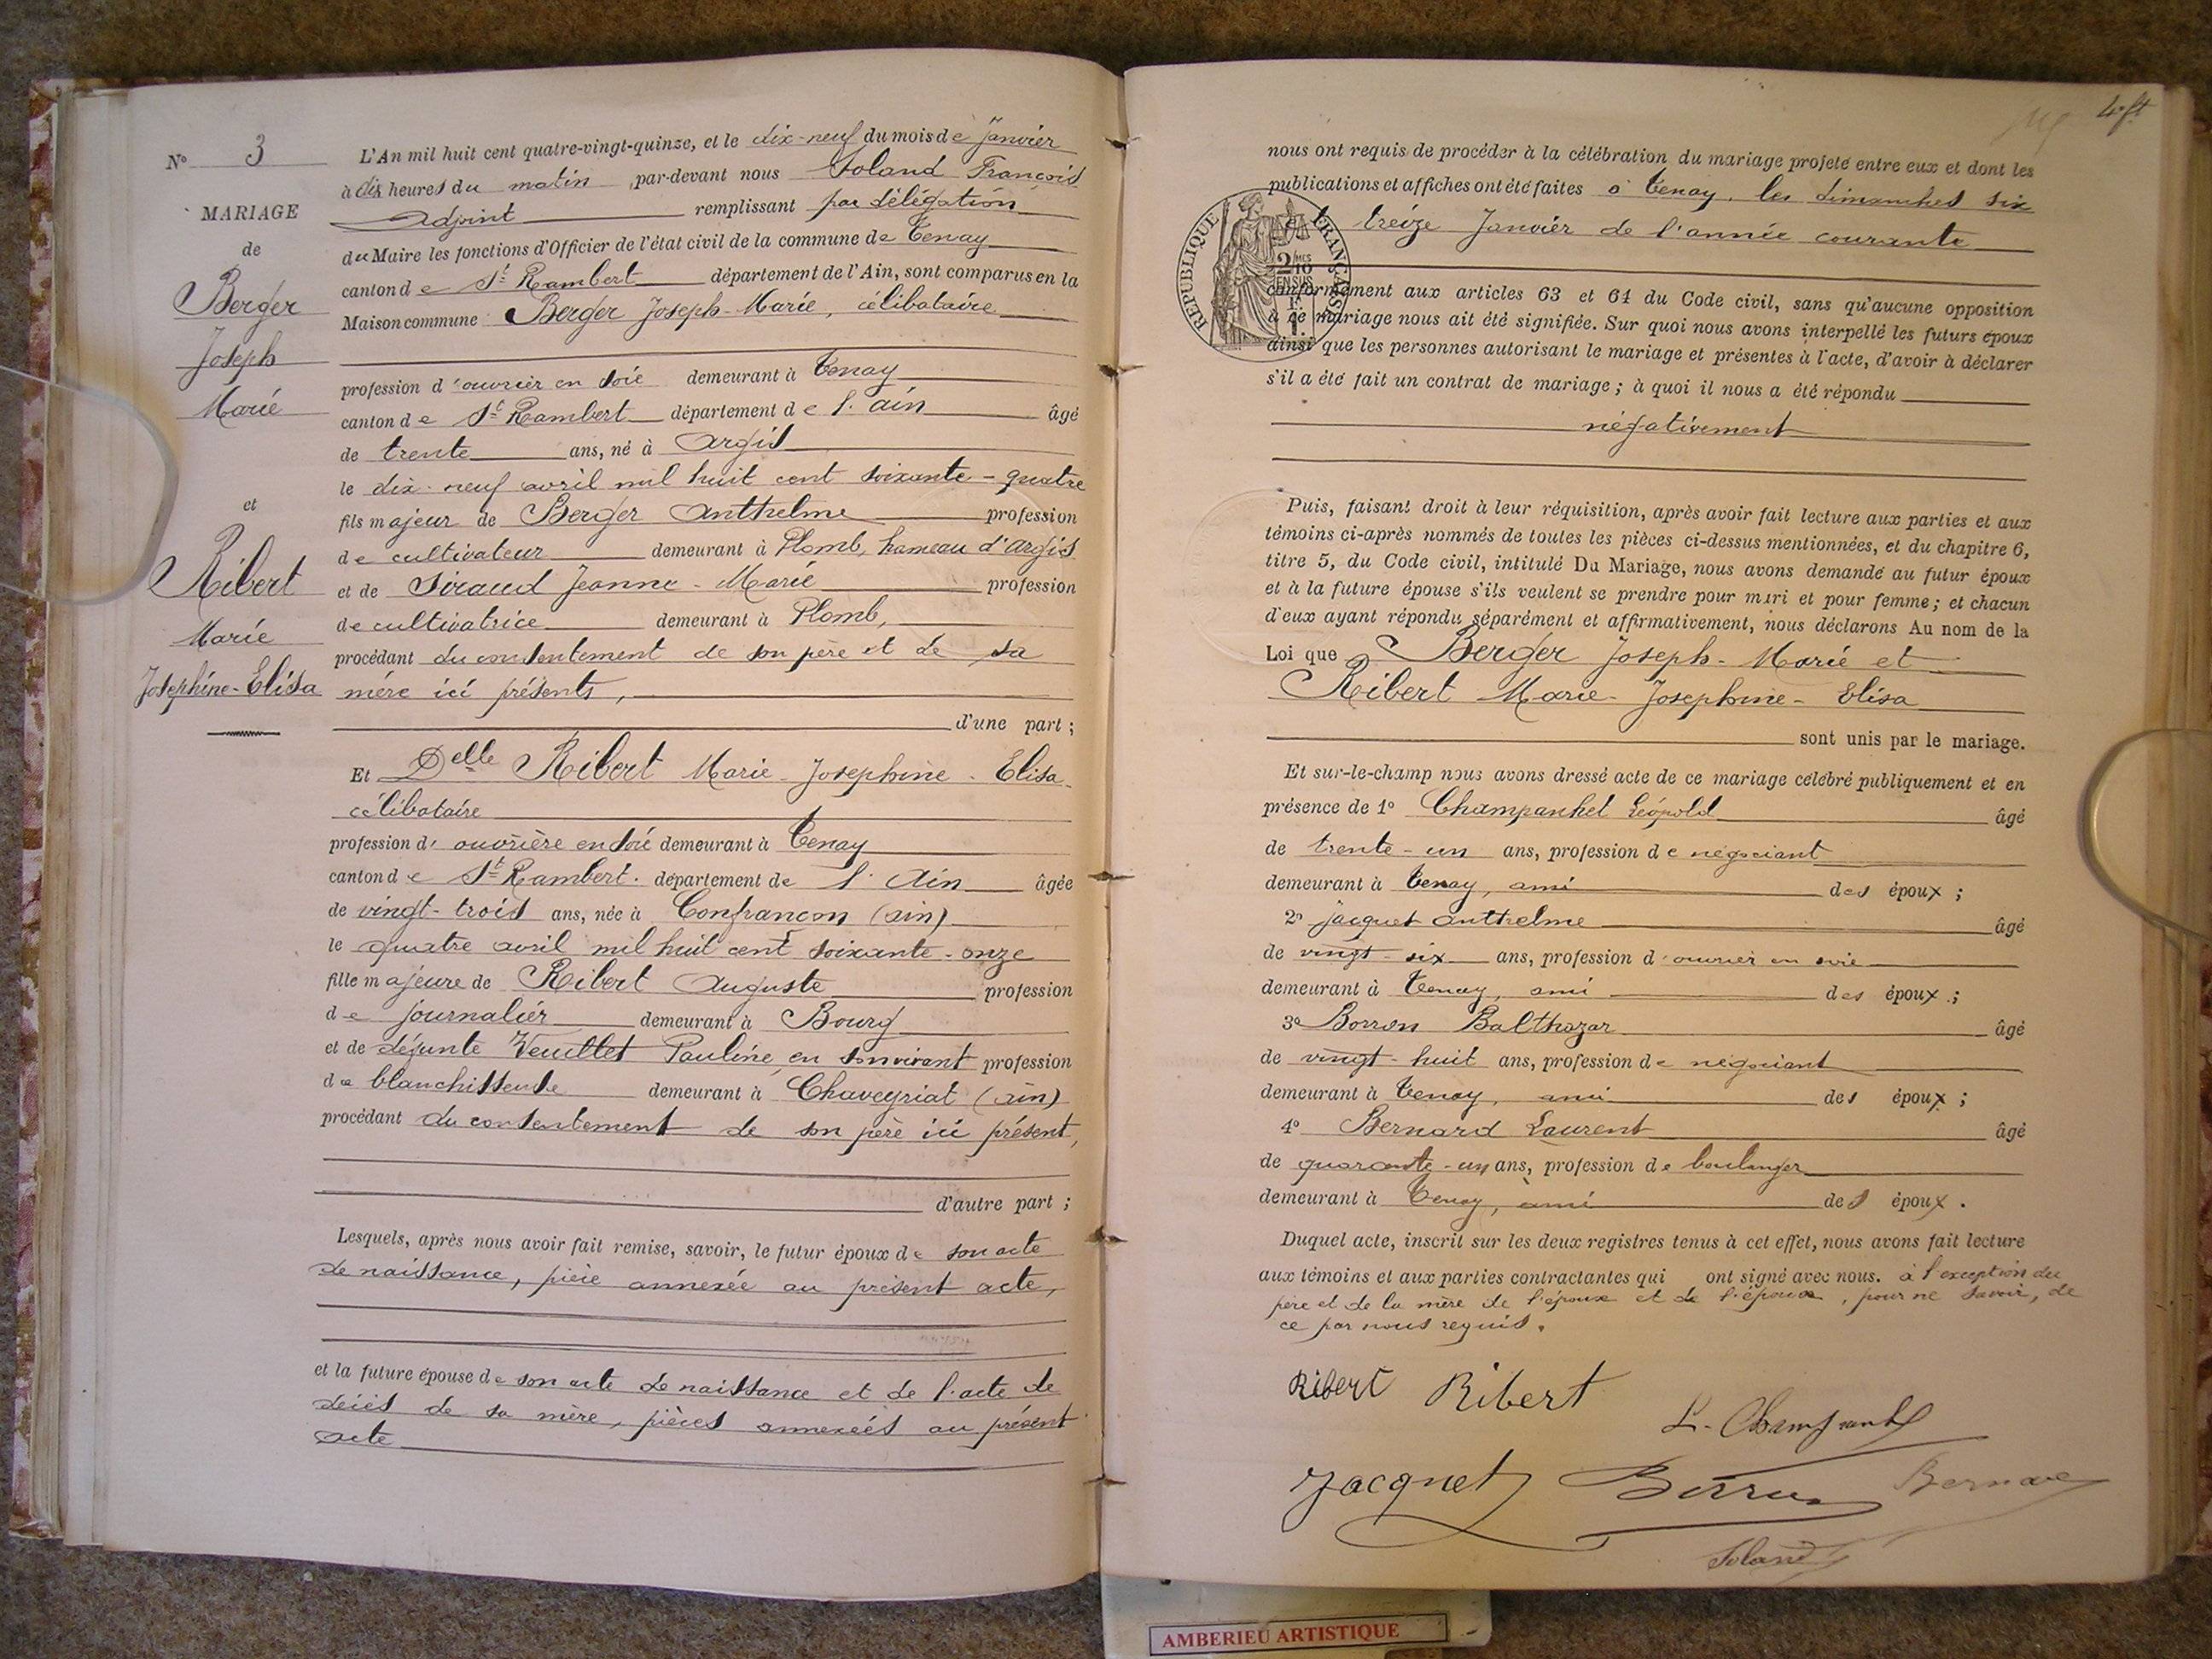 N° 3
MARIAGE
de
Berger
Joseph
Marie
et
Ribert
Marie
Josephine-Elisa
L'An mil huit cent quatre-vingt-quinze, et le dix-neuf du mois de Janvier
à dix heures du matin par-devant nous Soland François
Adjoint remplissant par délégation
du Maire les fonctions d'Officier de l'état civil de la commune de Tenay
canton de St Rambert département de l'Ain, sont comparus en la
Maison commune Berger Joseph-Marie, célibataire
profession d'ouvrier en soie demeurant à Tenay
canton de St Rambert département de l'ain âgé
de trente ans, né à Argis
le dix-neuf avril mil huit cent soixante-quatre
fils majeur de Berger Anthelme profession
de cultivateur demeurant à Plomb, hameau d'Argis
et de Siraud Jeanne-Marie profession
de cultivatrice demeurant à Plomb,
procédant du consentement de son père et de sa
mère ici présents,
d'une part ;
Et Delle Ribert Marie-Josephine-Elisa
célibataire
profession d'ouvrière en soie demeurant à Tenay
canton de St Rambert. département de l'Ain âgée
de vingt-trois ans, née à Confrançon (ain)
le quatre avril mil huit cent soixante-onze
fille majeure de Ribert Auguste profession
de journalier demeurant à Bourg
et de défunte Veuillet Pauline, en son vivant profession
de blanchisseuse demeurant à Chaveyriat (ain)
procédant du consentement de son père ici présent,
d'autre part ;
Lesquels, après nous avoir fait remise, savoir, le futur époux de son acte
de naissance, pièce annexée au présent acte,
et la future épouse de son acte de naissance et de l'acte de
décès de sa mère, pièces annexées au présent
acte
nous ont requis de procéder à la célébration du mariage projeté entre eux et dont les
publications et affiches ont été faites à Tenay, les dimanches six
et treize Janvier de l'année courante
RÉPUBLIQUE FRANÇAISE
2/10MES
EN SUS
conformément aux articles 63 et 64 du Code civil, sans qu'aucune opposition
à ce mariage nous ait été signifiée. Sur quoi nous avons interpellé les futurs époux
ainsi que les personnes autorisant le mariage et présentes à l'acte, d'avoir à déclarer
s'il a été fait un contrat de mariage ; à quoi il nous a été répondu
négativement
Puis, faisant droit à leur réquisition, après avoir fait lecture aux parties et aux
témoins ci-après nommés de toutes les pièces ci-dessus mentionnées, et du chapitre 6,
titre 5, du Code civil, intitulé Du Mariage, nous avons demandé au futur époux
et à la future épouse s'ils veulent se prendre pour mari et pour femme ; et chacun
d'eux ayant répondu séparément et affirmativement, nous déclarons Au nom de la
Loi que Berger Joseph-Marie et
Ribert Marie-Josephine-Elisa
sont unis par le mariage.
Et sur-le-champ nous avons dressé acte de ce mariage célébré publiquement et en
présence de 1° Champanhel Léopold âgé
de trente-un ans, profession de négociant
demeurant à Tenay, ami des époux ;
2° Jacquet Anthelme âgé
de vingt-six ans, profession d'ouvrier en soie
demeurant à Tenay, ami des époux ;
3° Borron Balthazar âgé
de vingt-huit ans, profession de négociant
demeurant à Tenay, ami des époux ;
4° Bernard Laurent âgé
de quarante-un ans, profession de boulanger
demeurant à Tenay, ami des époux.
Duquel acte, inscrit sur les deux registres tenus à cet effet, nous avons fait lecture
aux témoins et aux parties contractantes qui ont signé avec nous. à l'exception du
père et de la mère de l'époux et de l'époux, pour ne savoir, de
ce par nous requis.
Ribert Ribert
L. Champanhel
Jacquet Borron Bernard
Soland
AMBERIEU ARTISTIQUE